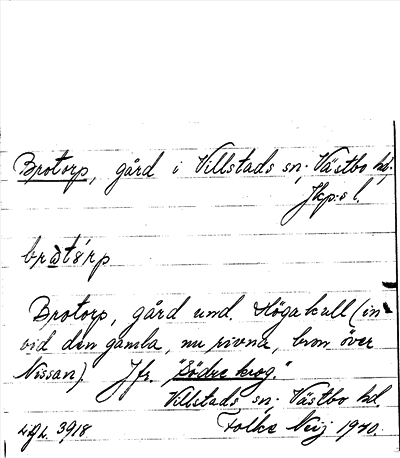 Brotorp, gård i Villstads sn, Västbo hd.
Jkp:s l.
broto'rp
Brotorp, gård und. Högakull (in-
vid den gamla, nu rivna, bron över
Nissan). Jfr. "Södra krog."
Villstads sn, Västbo hd.
3918 Folke Neij 1940.